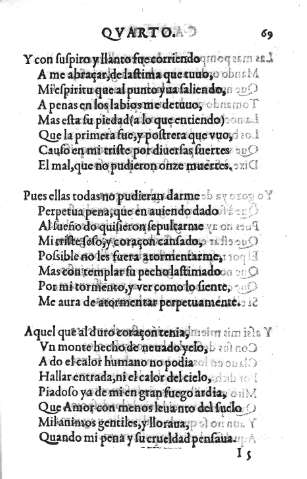 QVARTO. 69
Y con suspiro y llanto fue corriendo
A me abraçar, de lastima que tuuo,
Mi espiritu que al punto yua saliendo,
A penas en los labios me detuuo,
Mas esta su piedad (a lo que entiendo)
Que la primera fue, y postrera que vuo,
Causò en mi triste por diuersas suertes
El mal, que no pudieron onze muertes.
Pues ellas todas no pudieran darme
Perpetua pena, que en auiendo dado
Al sueño do quisieron sepultarme
Mi triste seso, y coraçon cansado,
Possible no les fuera atormentarme,
Mas con templar su pecho lastimado
Por mi tormento, y ver como lo siente,
Me aura de atormentar perpetuamente.
Aquel que al duro coraçon tenia,
Vn monte hecho de neuado yelo,
A do el calor humano no podia
Hallar entrada, ni el calor del cielo,
Piadoso ya de mi en gran fuego ardia,
Que Amor con menos leuanto del suelo
Mil animos gentiles, y lloraua,
Quando mi pena y su crueldad pensaua.
I 5